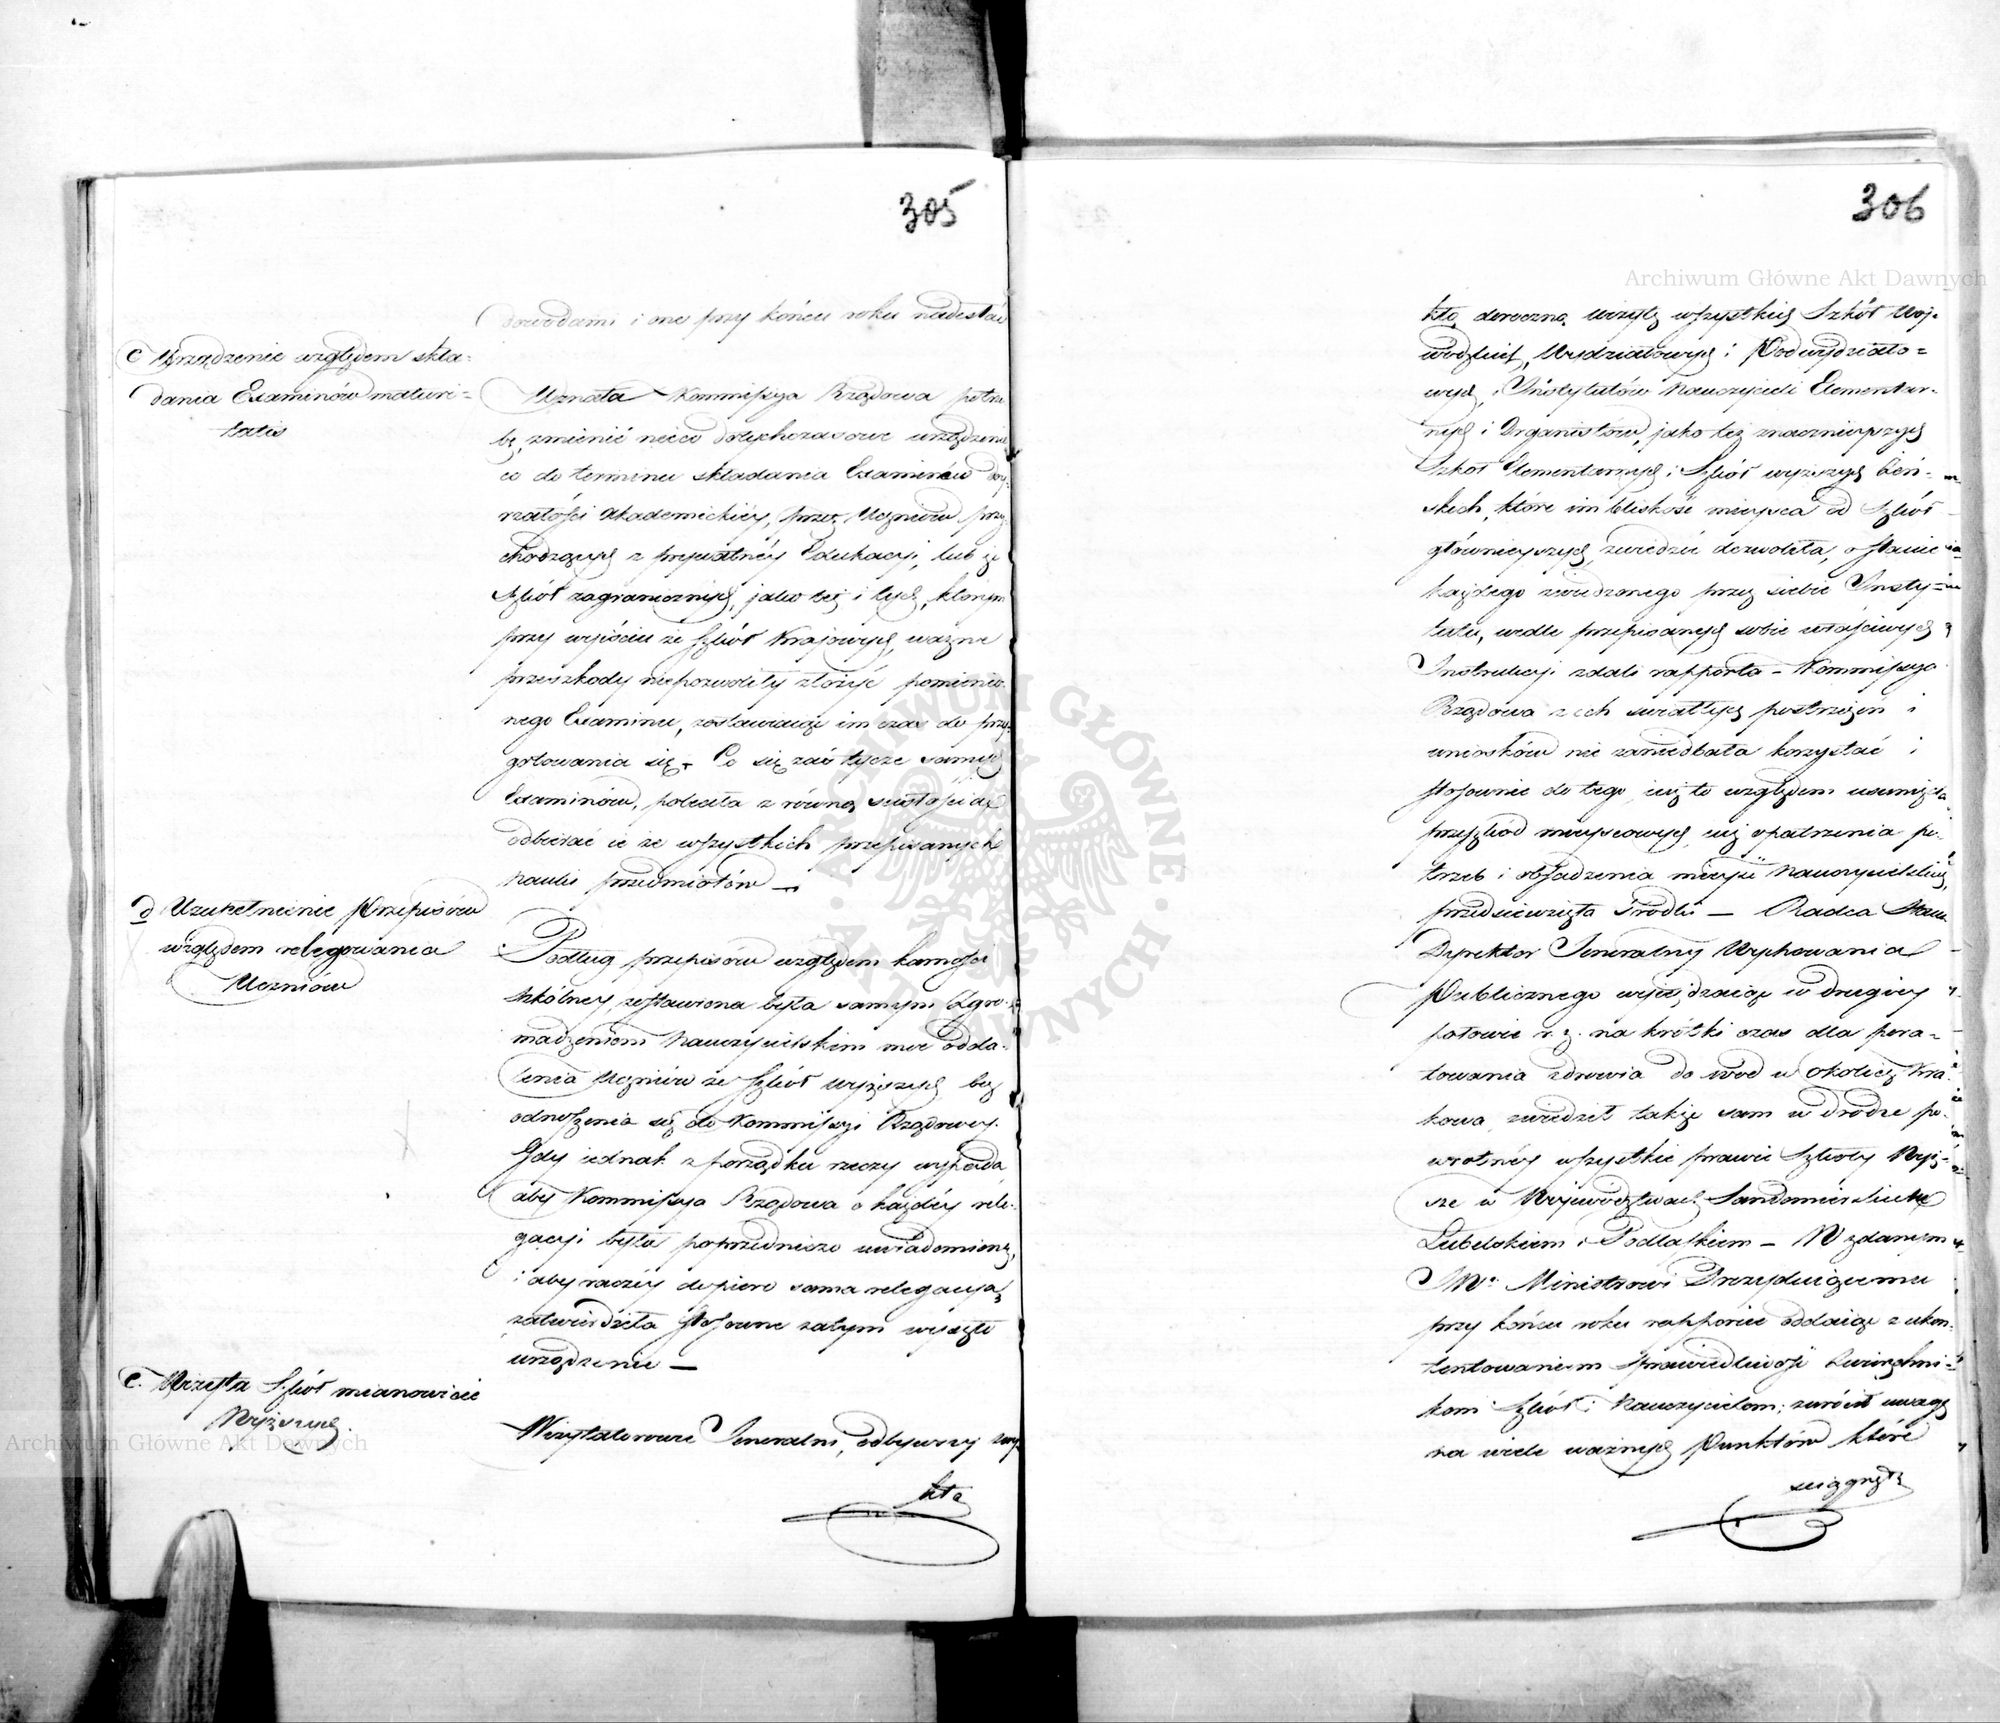 305
dowodami i one przy końcu roku nadesłać
c Urządzenie względem skła-
dania Examinów maturi-
tatis
Uznała Kommissya Rządowa potrze
bę, zmienić nieco dotychczasowe urządzenie
co do terminu składania Examinów doj-
rzałości Akademickiéy, przez Uczniów przy
chodzących z prywatnéy Edukacyi, lub ze
Szkół zagranicznych, jako też i tych, którym
przy wyiściu ze Szkół Krajowych, ważne
przeszkody niepozwoliły złożyć pomienio-
nego Examinu, zostawiaiąc im czas do przy-
gotowania się. Co się zaś tycze samych
Examinów, poleciła z równą ścisłością
odbierać ie ze wszystkich przepisanych
nauk przedmiotów —
d Uzupełnienie Przepisów
względem relegowania
Uczniów
Podług przepisów względem karności
szkólney, zostawiona była samym Zgro-
madzeniom Nauczycielskim moc odda-
lenia Uczniów ze Szkół wyższych, bez
odnoszenia się do Kommissyi Rządowey.
Gdy iednak z porządku rzeczy wypada,
aby Kommissya Rządowa o każdéy rele-
gacyi była poprzedniczo uwiadomioną,
i aby raczéy dopiero sama relegacyą
zatwierdzała stosowne zatym wyszło
urządzenie —
e. Wizyta Szkół mianowicie
Wyższych.
Wizytatorowie Jeneralni, odbywszy zwy-
kłą
306
kłą doroczną wizytę wszystkich Szkół Woj-
wódzkich, Wydziałowych i Podwydziało-
wych, i Instytutów Nauczycieli Elementar-
nych i Organistów, jako też znacznieyszych
Szkół Elementarnych i Szkół wyższych Żeń-
skich, które im bliskość mieysca od Szkół
główniejszych zwiedzić dozwoliła, o stanie
każdego zwiedzonego przez siebie Insty-
tutu, wedle przepisanych sobie właściwych
Instrukcyi zdali rapporta — Kommissya
Rządowa z ich światłych postrzeżeń i
wniosków nie zaniedbała korzystać i
stosownie do tego, iuż to względem usunięcia
przeszkód mieyscowych, iuż opatrzenia po-
trzeb i obsadzenia mieysc Nauczycielskich,
przedsięwzięła środki — Radca Stanu
Dyrektor Jeneralny Wychowania
Publicznego wyieżdżaiąc w drugiey
połowie r. z. na krótki czas dla pora-
towania zdrowia do wód w okolicę Kra-
kowa, zwiedził także sam w drodze po-
wrotnéy wszystkie prawie Szkoły Wyż-
sze w Województwach Sandomierskiem
Lubelskiem i Podlaskiem — W zdanym
JW. Ministrowi Prezyduiącemu
przy końcu roku rapporcie oddaiąc z ukon-
tentowaniem sprawiedliwość Zwierzchni-
kom Szkół i Nauczycielom; zwrócił uwagę
na wiele ważnych Punktów które
ściągnęły